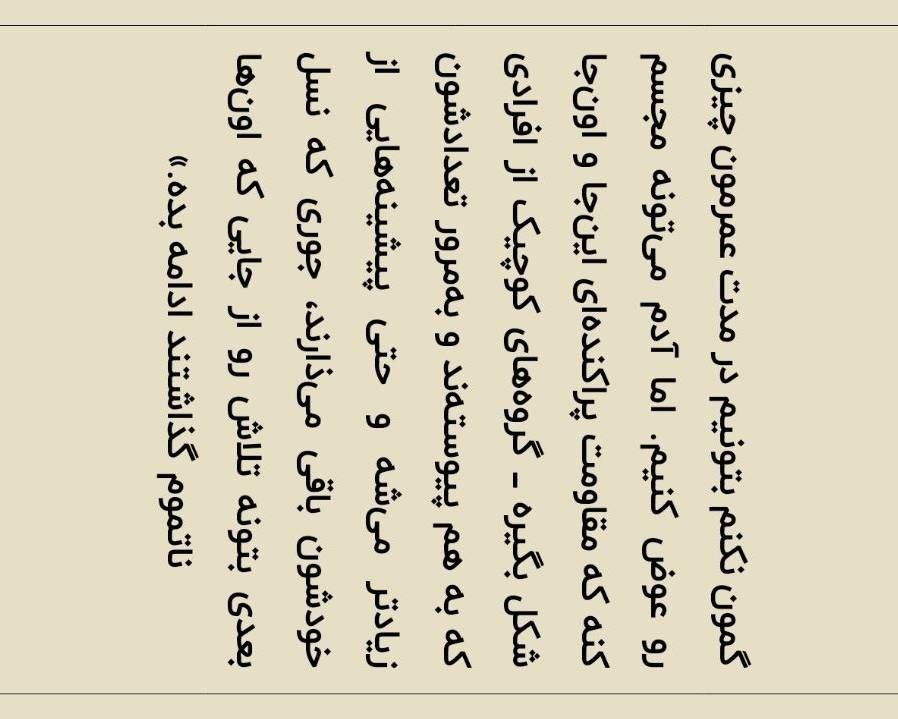 گمون نکنم بتونیم در مدت عمرمون چیزی
رو عوض کنیم. اما آدم می‌تونه مجسم
کنه که مقاومت پراکنده‌ای این‌جا و اون‌جا
شکل بگیره - گروه‌های کوچیک از افرادی
که به هم پیوسته‌ند و به‌مرور تعدادشون
زیادتر می‌شه و حتی پیشینه‌هایی از
خودشون باقی می‌ذارند، جوری که نسل
بعدی بتونه تلاش رو از جایی که اون‌ها
ناتموم گذاشتند ادامه بده.»